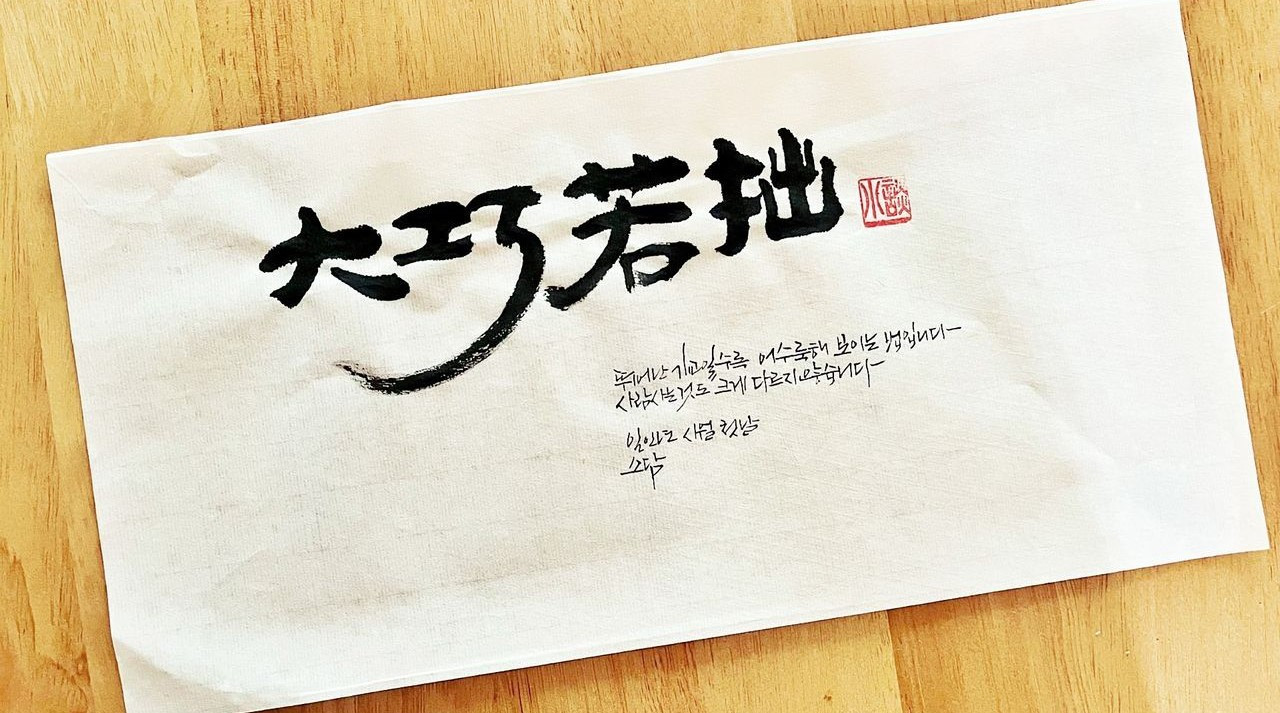 大巧若拙
小談
뛰어난 기교일수록 어수룩해 보이는 법입니다
사람사는것도 크게 다르지않습니다
사월 첫날
소담